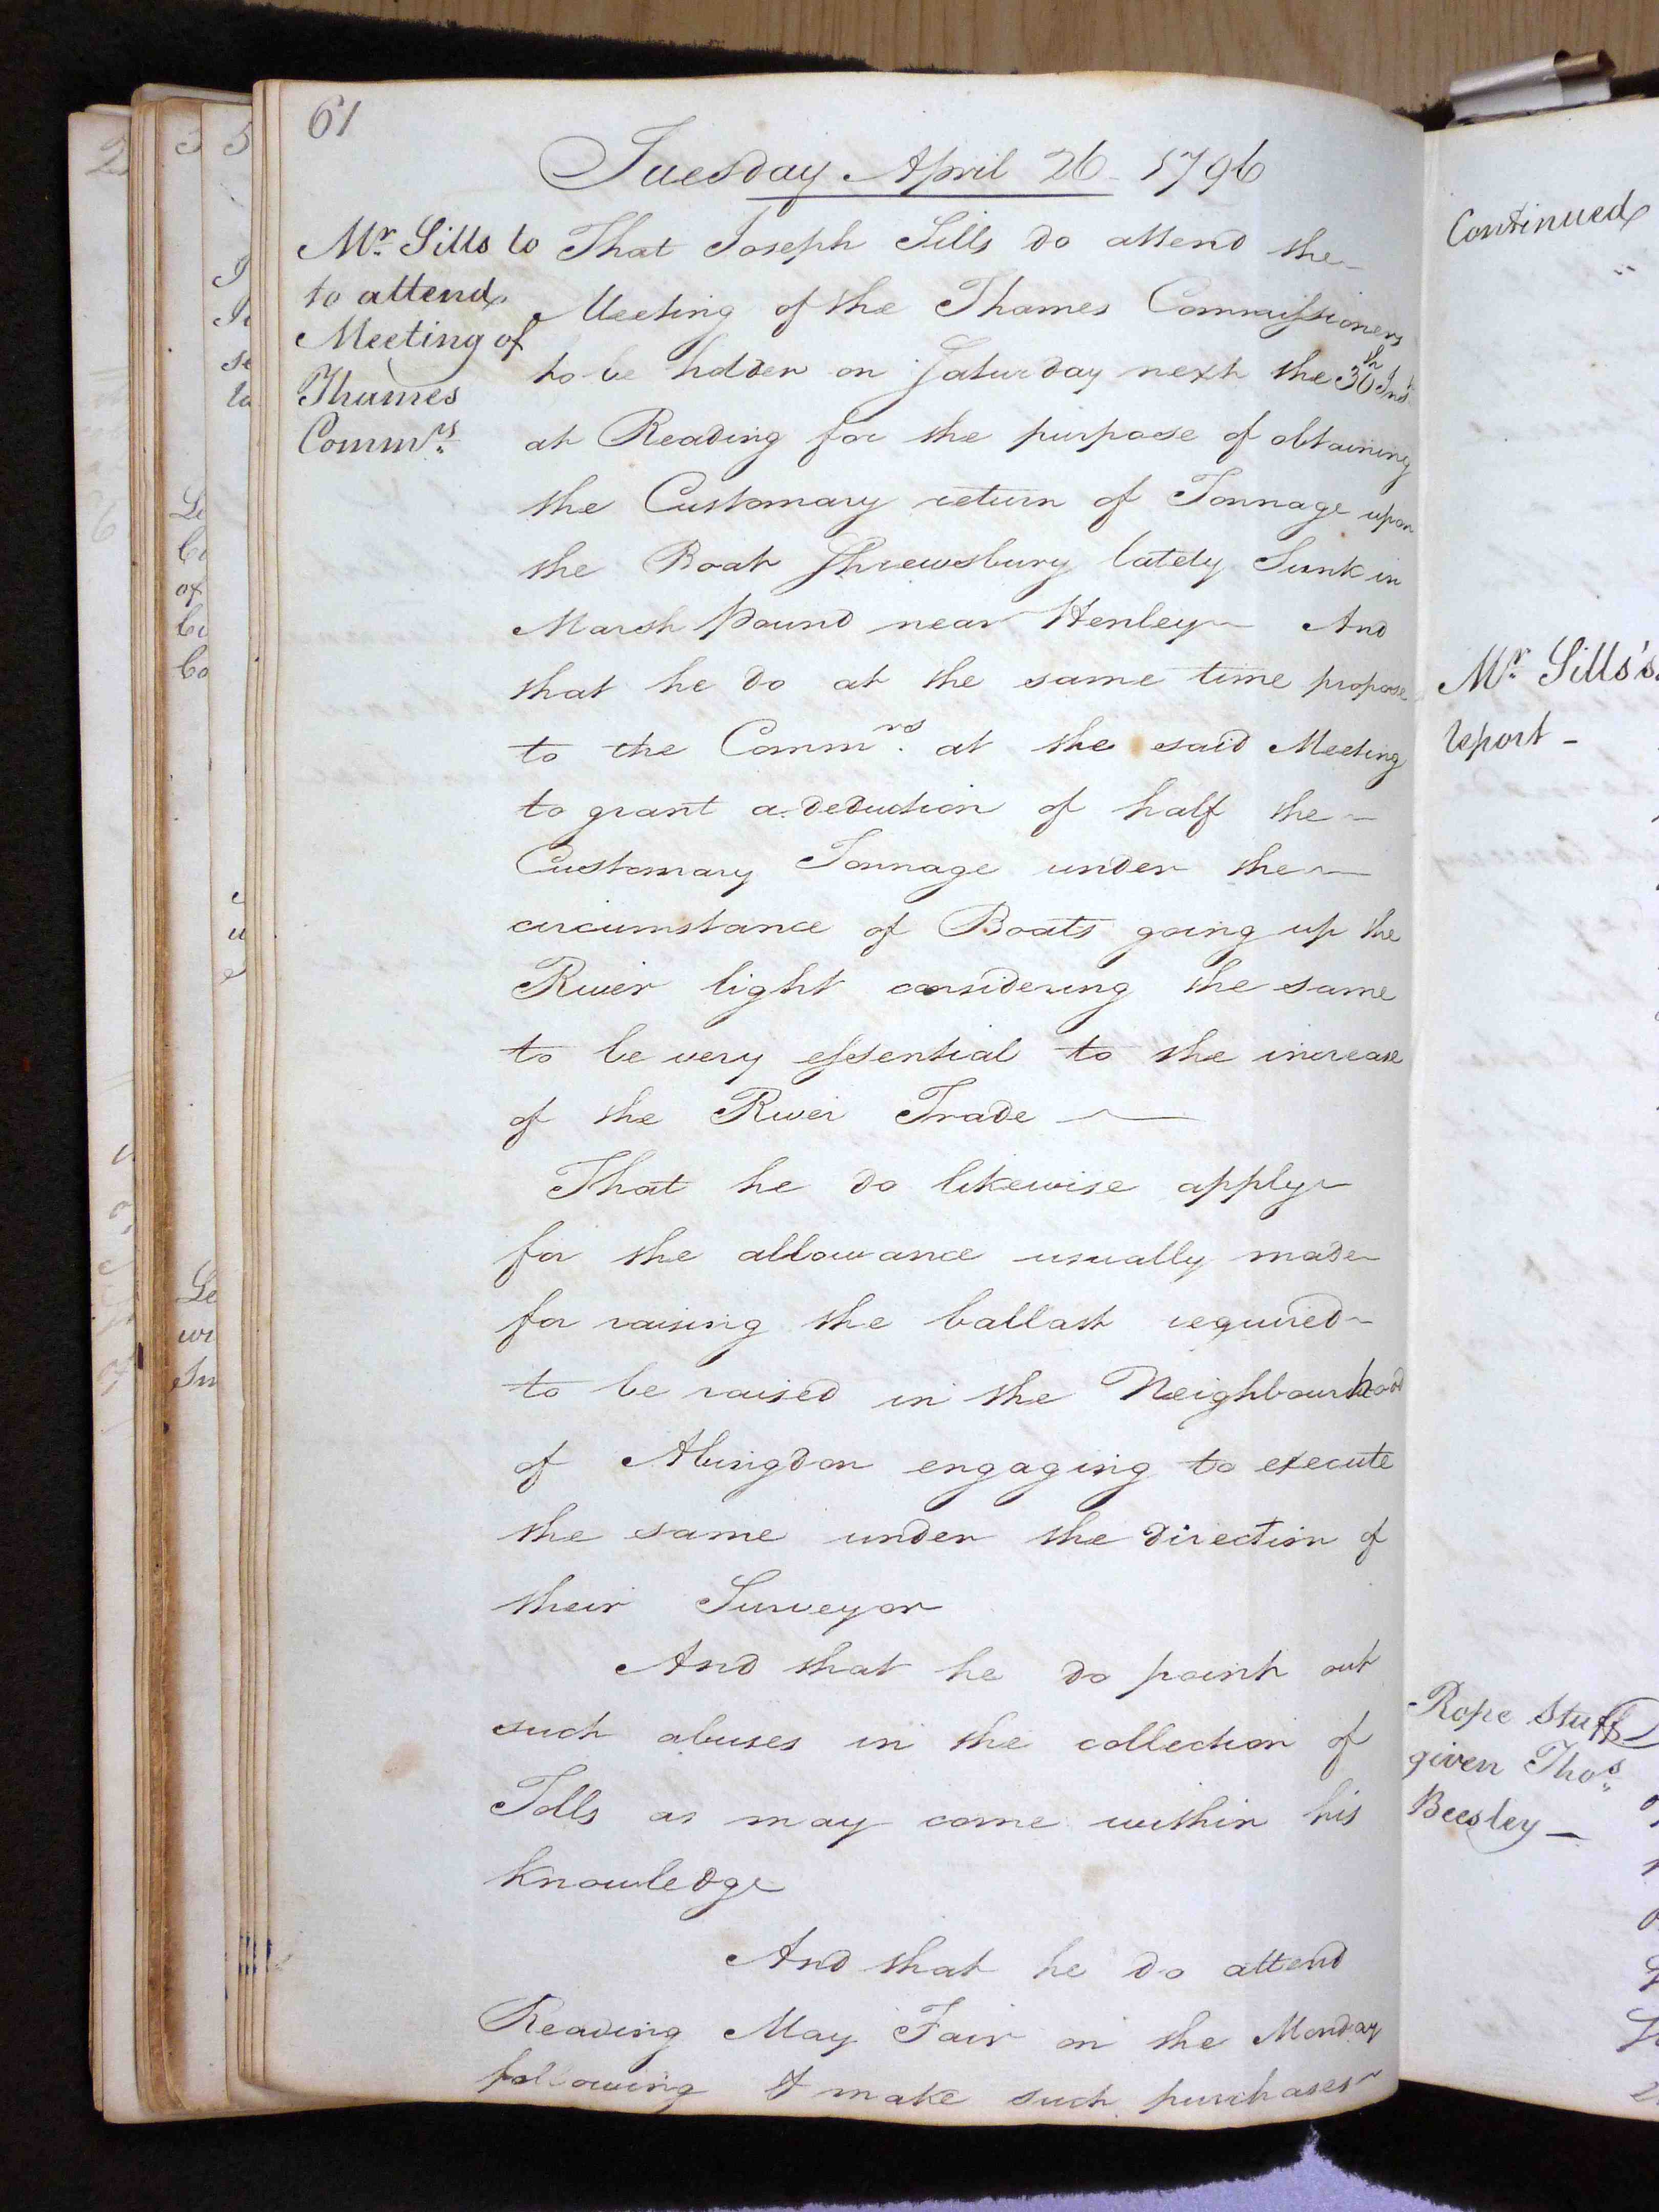 61
Tuesday April 26 1796
Mr. Sills to
to attend
Meeting of
Thames
Commrs.
That Joseph Sills do attend the
Meeting of the Thames Commissioners
to be holden on Saturday next the 30th Inst.
at Reading for the purpose of obtaining
the Customary return of Tonnage upon
the Boat Shrewsbury lately Sunk in
Marsh Pound near Henley And
that he do at the same time propose
to the Commrs. at the said Meeting
to grant a deduction of half the
Customary Tonnage under the
circumstance of Boats going up the
River light considering the same
to be very essential to the increase
of the River Trade
That he do likewise apply
for the allowance usually made
for raising the ballast required
to be raised in the Neighbourhood
of Abingdon engaging to execute
the same under the direction of
their Surveyor
And that he do point out
such abuses in the collection of
Tolls as may come within his
knowledge
And that he do attend
Reading May Fair on the Monday
following & make such purchases
Continued
Mr. Sills's
report -
Rope Stuff
given Thos.
Beesley -